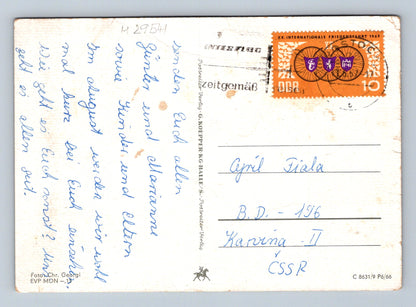 4 2954
senden Euch allen
Günter und Marianne
sowie Kinder und Eltern
Im August werden wir wohl
mal kurz bei Euch
Wie geht es Euch sonst?
geht es allen gut.
Foto: Chr. Georgi
EVP MDN –,
Postreiter-Verlag G. KOEPPER KG HALLE/S. Postreiter-Verlag
INTERFLUG
zeitgemäß
XX. INTERNATIONALE FRIEDENSFAHRT 1967
DDR
10
Cyril Fiala
B. D. - 196
Karviná - II
ČSSR
C 8631/9 P6/66